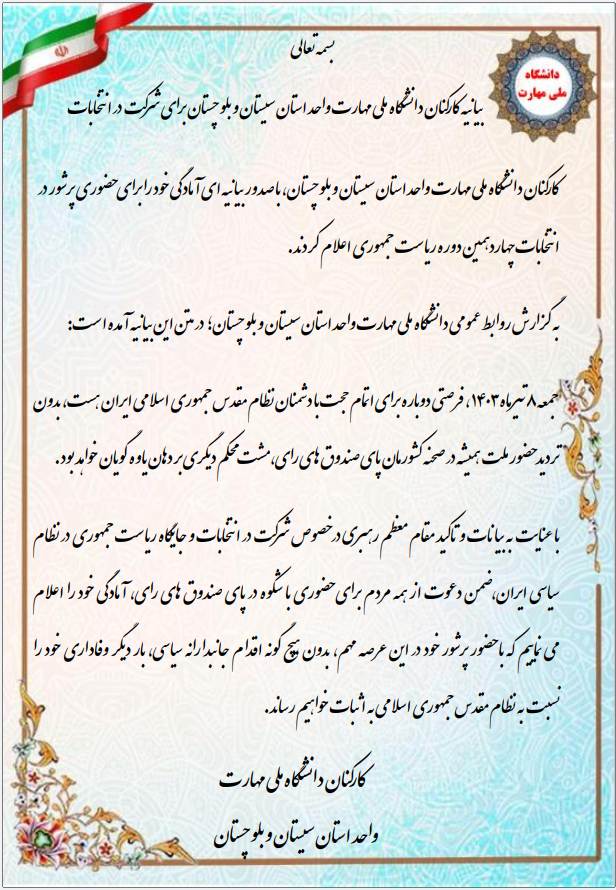 دانشگاه
ملی مهارت
بسمه تعالی
بیانیه کارکنان دانشگاه ملی مهارت واحد استان سیستان و بلوچستان برای شرکت در انتخابات
کارکنان دانشگاه ملی مهارت واحد استان سیستان و بلوچستان، با صدور بیانیه ای آمادگی خود را برای حضوری پرشور در
انتخابات چهاردهمین دوره ریاست جمهوری اعلام کردند.
به گزارش روابط عمومی دانشگاه ملی مهارت واحد استان سیستان و بلوچستان؛ در متن این بیانیه آمده است:
جمعه ۸ تیرماه ۱۴۰۳، فرصتی دوباره برای اتمام حجت با دشمنان نظام مقدس جمهوری اسلامی ایران هست، بدون
تردید حضور ملت همیشه در صحنه کشورمان پای صندوق های رای، مشت محکم دیگری بر دهان یاوه گویان خواهد بود.
با عنایت به بیانات و تاکید مقام معظم رهبری در خصوص شرکت در انتخابات و جایگاه ریاست جمهوری در نظام
سیاسی ایران، ضمن دعوت از همه مردم برای حضوری با شکوه در پای صندوق های رای، آمادگی خود را اعلام
می نماییم که با حضور پرشور خود در این عرصه مهم، بدون هیچ گونه اقدام جانبدارانه سیاسی، بار دیگر وفاداری خود را
نسبت به نظام مقدس جمهوری اسلامی به اثبات خواهیم رساند.
کارکنان دانشگاه ملی مهارت
واحد استان سیستان و بلوچستان